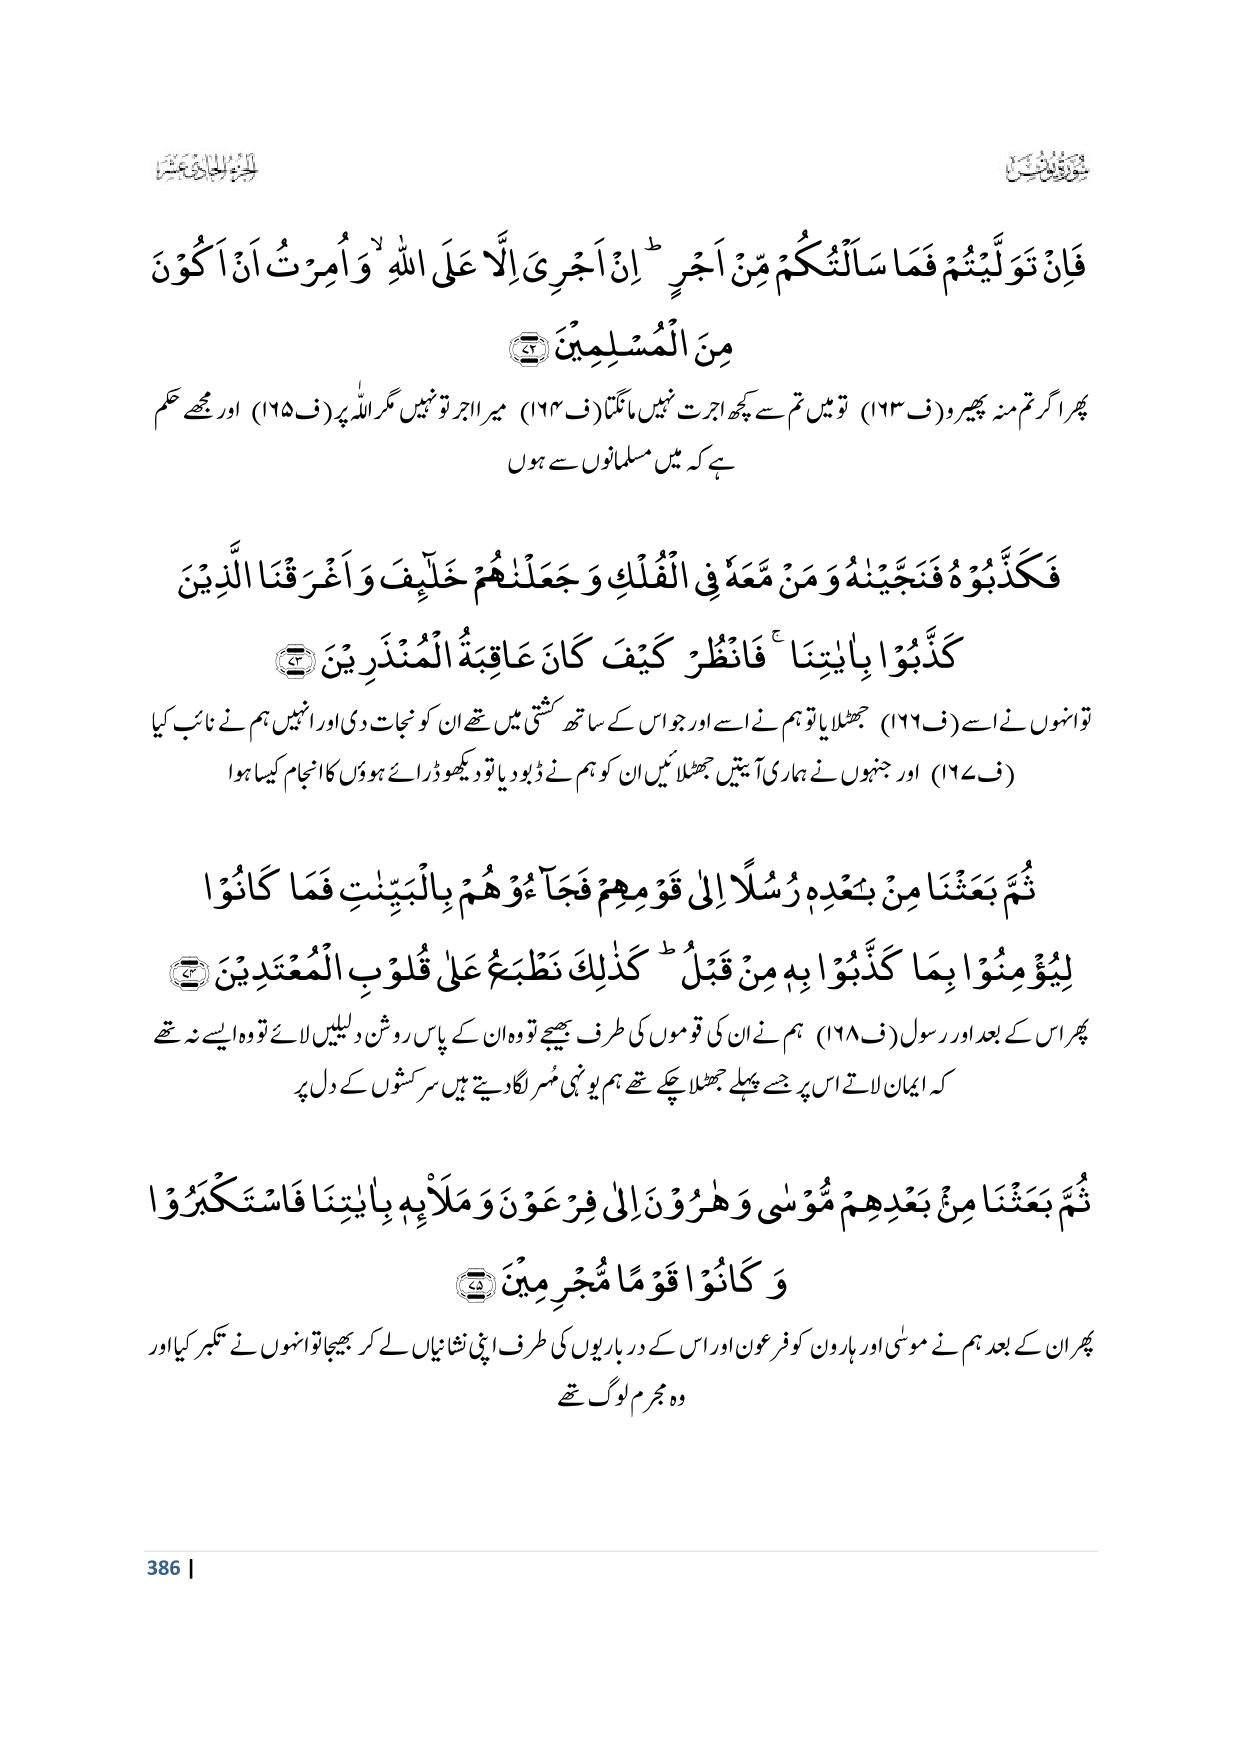 سُوْرَةُ يُوْنُس
الجزء الحادی عشر
فَاِنْ تَوَلَّيْتُمْ فَمَا سَاَلْتُكُمْ مِّنْ اَجْرٍ ؕ اِنْ اَجْرِیَ اِلَّا عَلَی اللّٰهِ ۙ وَ اُمِرْتُ اَنْ اَكُوْنَ
مِنَ الْمُسْلِمِيْنَ ﴿۷۲﴾
پھر اگر تم منہ پھیرو (ف۱۶۳) تو میں تم سے کچھ اجرت نہیں مانگتا (ف۱۶۴) میرا اجر تو نہیں مگر اللّٰہ پر (ف۱۶۵) اور مجھے حکم
ہے کہ میں مسلمانوں سے ہوں
فَكَذَّبُوْهُ فَنَجَّيْنٰهُ وَ مَنْ مَّعَهٗ فِی الْفُلْكِ وَ جَعَلْنٰهُمْ خَلٰٓئِفَ وَ اَغْرَقْنَا الَّذِيْنَ
كَذَّبُوْا بِاٰيٰتِنَا ۚ فَانْظُرْ كَيْفَ كَانَ عَاقِبَةُ الْمُنْذَرِيْنَ ﴿۷۳﴾
تو انہوں نے اسے (ف۱۶۶) جھٹلایا تو ہم نے اسے اور جو اس کے ساتھ کشتی میں تھے ان کو نجات دی اور انہیں ہم نے نائب کیا
(ف۱۶۷) اور جنہوں نے ہماری آیتیں جھٹلائیں ان کو ہم نے ڈبو دیا تو دیکھو ڈرائے ہوؤں کا انجام کیسا ہوا
ثُمَّ بَعَثْنَا مِنْۢ بَعْدِهٖ رُسُلًا اِلٰی قَوْمِهِمْ فَجَآءُوْهُمْ بِالْبَيِّنٰتِ فَمَا كَانُوْا
لِيُؤْمِنُوْا بِمَا كَذَّبُوْا بِهٖ مِنْ قَبْلُ ؕ كَذٰلِكَ نَطْبَعُ عَلٰی قُلُوْبِ الْمُعْتَدِيْنَ ﴿۷۴﴾
پھر اس کے بعد اور رسول (ف۱۶۸) ہم نے ان کی قوموں کی طرف بھیجے تو وہ ان کے پاس روشن دلیلیں لائے تو وہ ایسے نہ تھے
کہ ایمان لاتے اس پر جسے پہلے جھٹلا چکے تھے ہم یونہی مُہر لگا دیتے ہیں سرکشوں کے دل پر
ثُمَّ بَعَثْنَا مِنْۢ بَعْدِهِمْ مُّوْسٰی وَ هٰرُوْنَ اِلٰی فِرْعَوْنَ وَ مَلَاۡئِهٖ بِاٰيٰتِنَا فَاسْتَكْبَرُوْا
وَ كَانُوْا قَوْمًا مُّجْرِمِيْنَ ﴿۷۵﴾
پھر ان کے بعد ہم نے موسٰی اور ہارون کو فرعون اور اس کے درباریوں کی طرف اپنی نشانیاں لے کر بھیجا تو انہوں نے تکبر کیا اور
وہ مجرم لوگ تھے
386 |